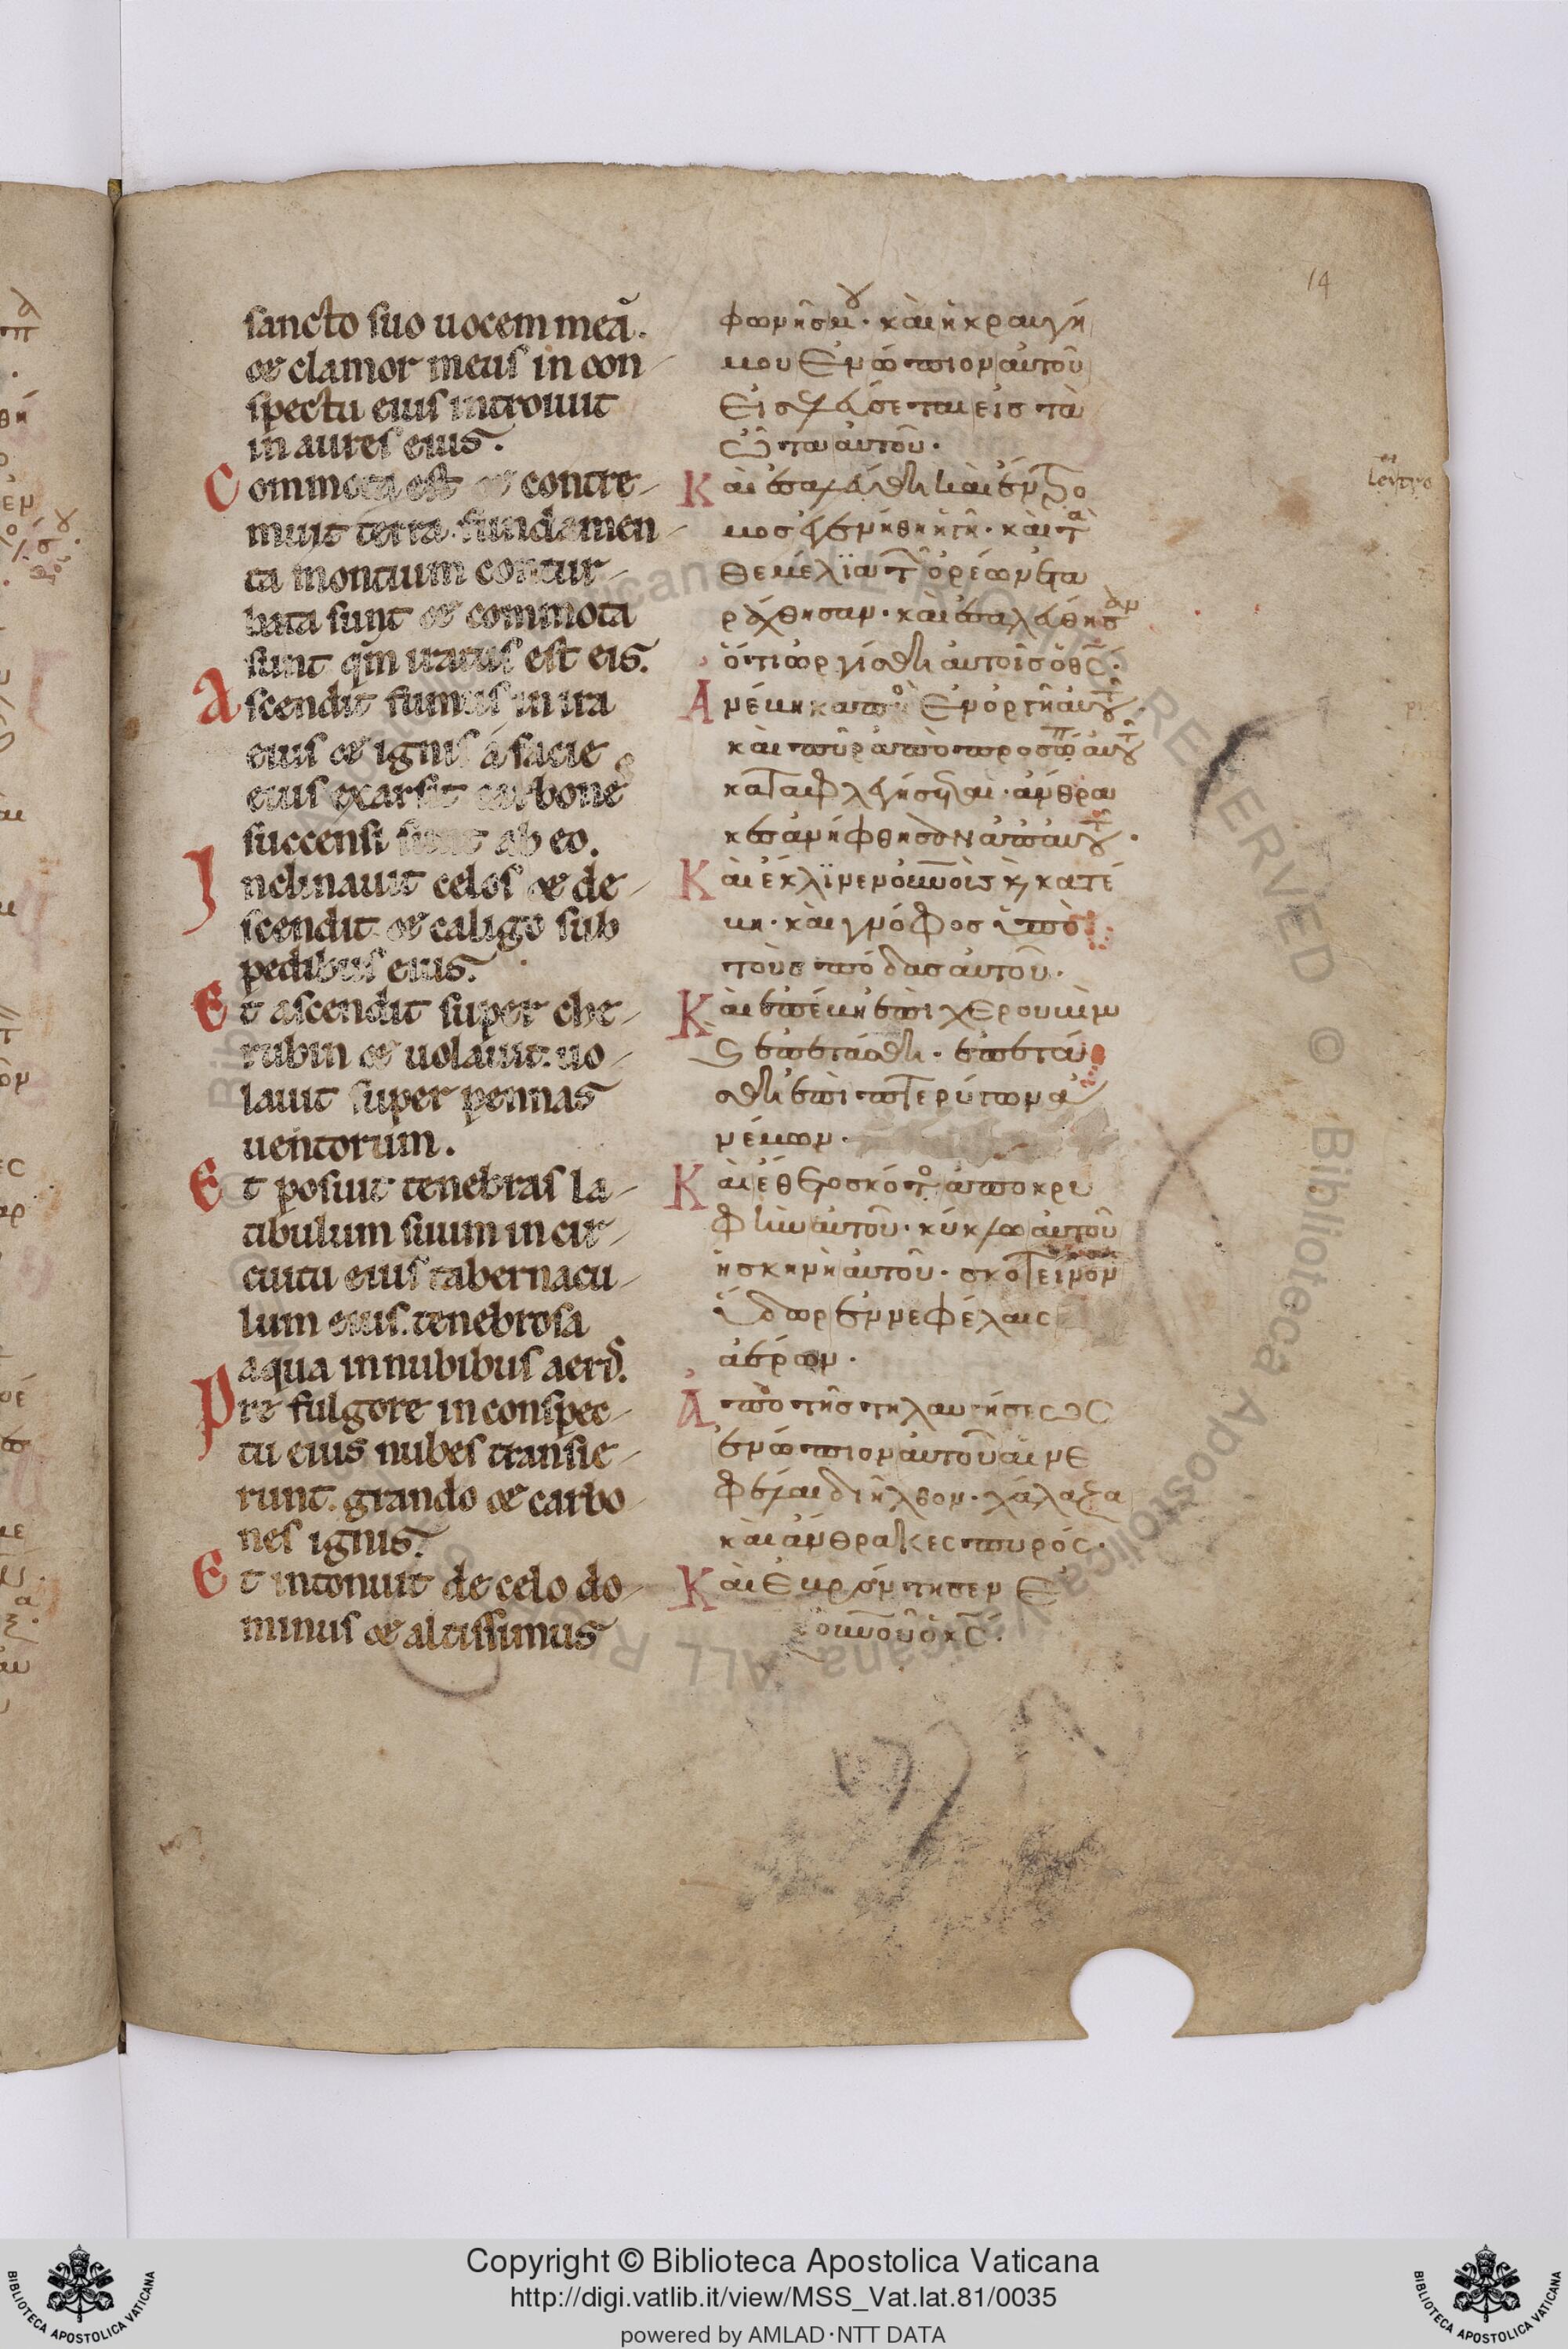 14
sancto suo uocem meā.
& clamor meus in con-
spectu eius introiuit
in aures eius.
Commota est & contre-
muit terra. fundamen-
ta montium contur-
bata sunt & commota
sunt qm̄ iratus est eis.
Ascendit fumus in ira
eius & ignis á facie
eius exarsit carbones
succensi sunt ab eo.
Inclinauit celos & de-
scendit. & caligo sub
pedibus eius.
Et ascendit super che-
rubin & uolauit: uo-
lauit super pennas
uentorum.
Et posuit tenebras la-
tibulum suum in cir-
cuitu eius tabernacu-
lum eius. tenebrosa
aqua in nubibus aeris.
Pre fulgore in conspec-
tu eius nubes transie-
runt. grando & carbo-
nes ignis.
Et intonuit de celo do-
minus & altissimus
φωνῆς μου· καὶ ἡ κραυγή
μου ἐνώπιον αὐτοῦ
εἰσελεύσεται εἰς τὰ
ὦτα αὐτοῦ·
Καὶ ἐσαλεύθη καὶ ἔντρο
μος ἐγενήθη ἡ γῆ· καὶ τὰ
θεμέλϊα τῶν ὀρέων ἐτα
ράχθησαν· καὶ ἐσαλεύθησαν
ὅτι ὠργίσθη αὐτοῖς ὁ θς̄·
Ἀνέβη καπνὸς ἐν ὀργῇ αὐτοῦ·
καὶ πῦρ ἀπὸ προσώπου αὐτοῦ
καταφλογήσεται· ἄνθρα
κες ἀνήφθησαν ἀπ' αὐτοῦ·
Καὶ ἔκλϊνεν οὐνοὺς κ̀ κατέ
βη· καὶ γνόφος ὑπὸ
τοὺς πόδας αὐτοῦ·
Καὶ ἐπέβη ἐπὶ χερουβὶμ
κ̀ ἐπετάσθη· ἐπετά
σθη ἐπὶ πτερύγων ἀ
νέμων·
Καὶ ἔθετο σκότος ἀποκρυ
φὴν αὐτοῦ· κύκλῳ αὐτοῦ
ἡ σκηνὴ αὐτοῦ· σκοτεινὸν
ὕδωρ ἐν νεφέλαις
ἀέρων·
Ἀπὸ τῆς τηλαυγήσεως
ἐνώπιον αὐτοῦ αἱ νε
φέλαι διῆλθον· χάλαζα
καὶ ἄνθρακες πυρός·
Καὶ ἐβρόντησεν ἐ
ξ οὐνοῦ ὁ κς̄·
Copyright © Biblioteca Apostolica Vaticana
http://digi.vatlib.it/view/MSS_Vat.lat.81/0035
powered by AMLAD·NTT DATA
BIBLIOTECA APOSTOLICA VATICANA
BIBLIOTECA APOSTOLICA VATICANA